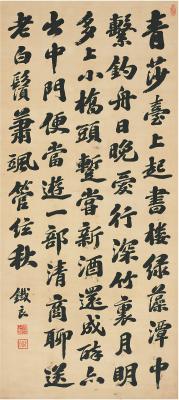 青莎臺上起書樓綠藻潭中
繫釣舟日晚愛行深竹裏月明
多上小橋頭暫嘗新酒還成醉亦
出中門便當遊一部清商聊送
老白鬚蕭颯管弦秋
鐵良